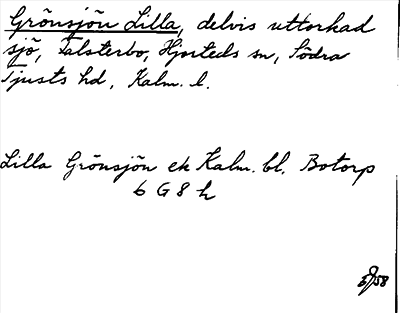 Grönsjön Lilla, delvis uttorkad
sjö, Falsterbo, Hjorteds sn, Södra
Tjusts hd, Kalm. l.
Lilla Grönsjön ek Kalm. bl. Botorp
6 G 8 h
58